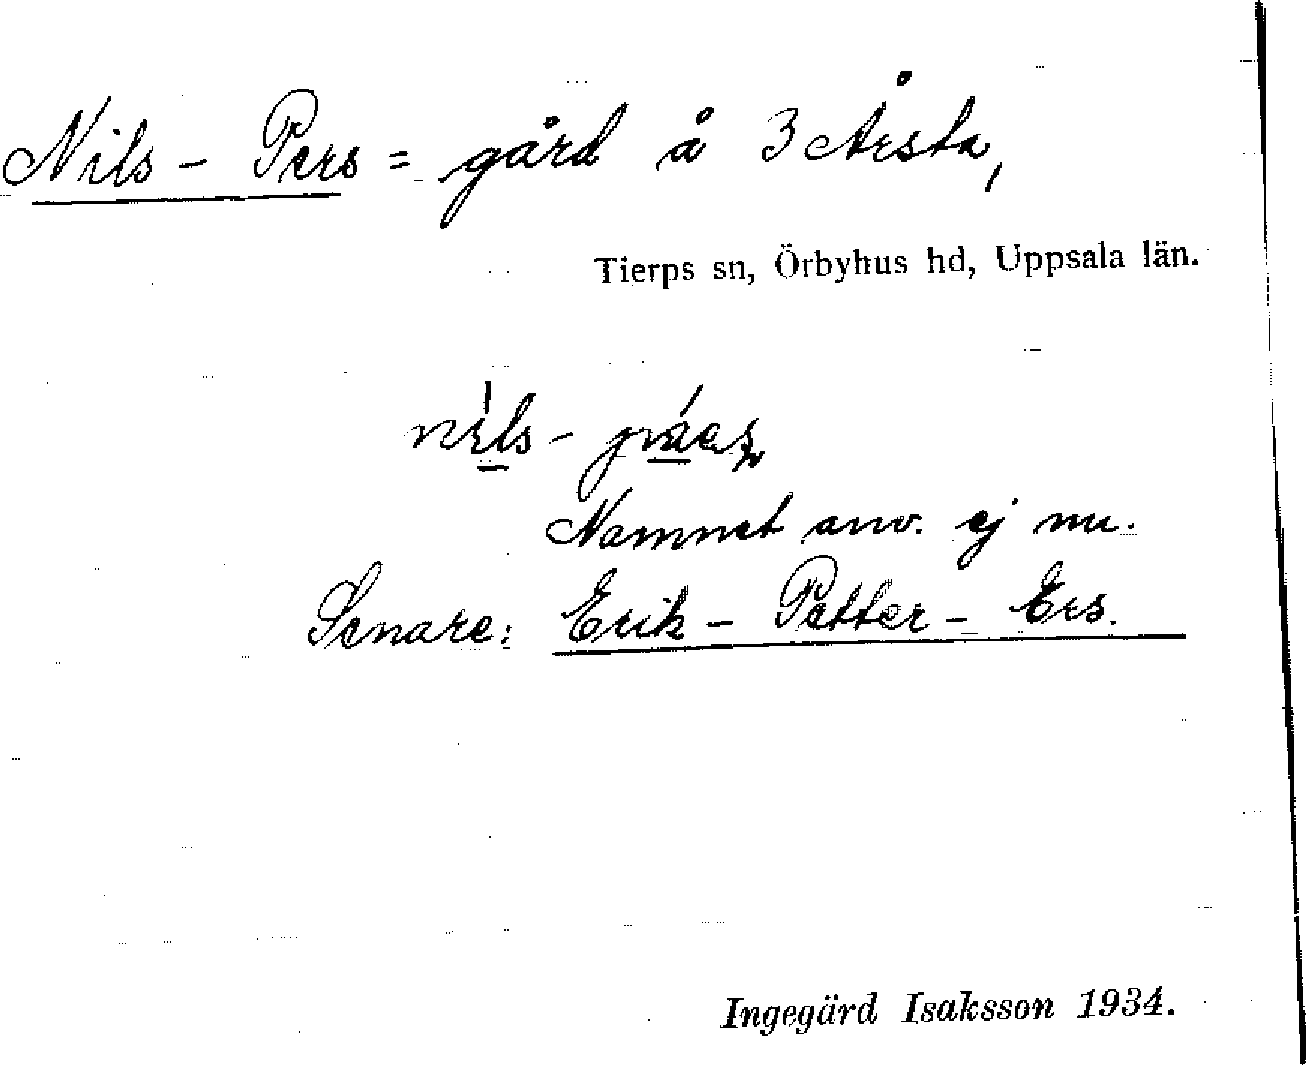 Nils - Pers = gård å 3 Årsta,
Tierps sn, Örbyhus hd, Uppsala län.
nils -
Namnet anv. ej nu.
Senare: Erik - Petter - Ers.
Ingegärd Isaksson 1934.